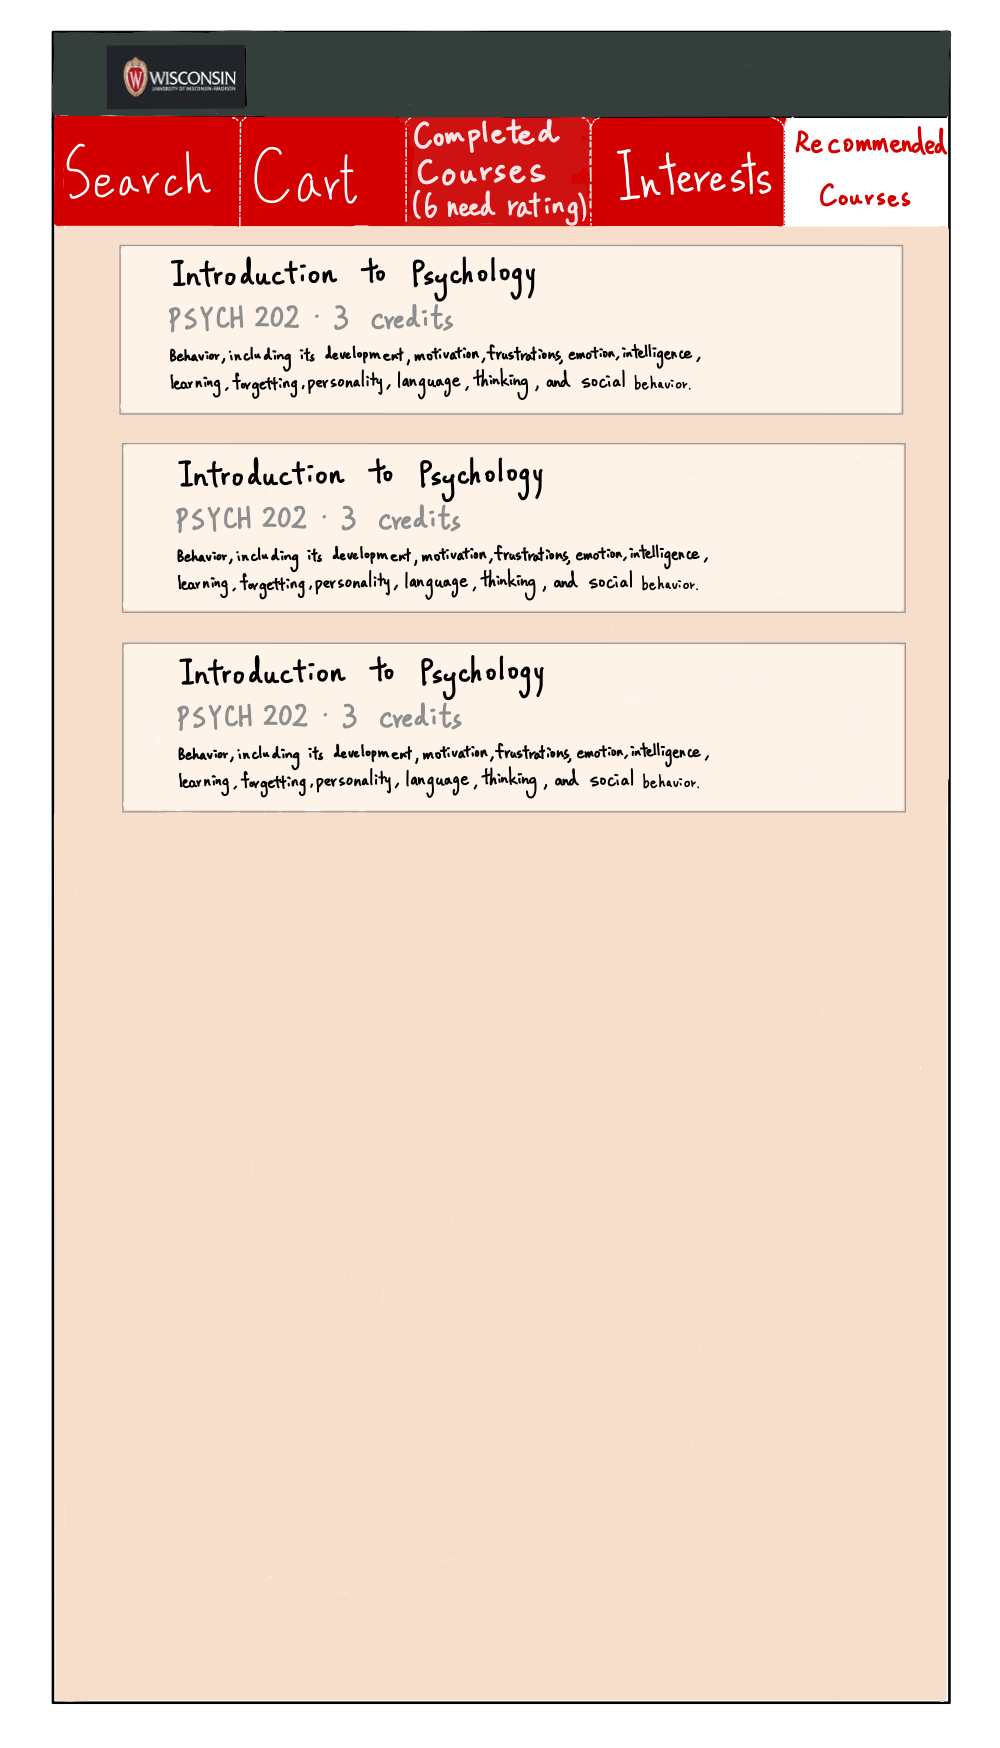 WISCONSIN
UNIVERSITY OF WISCONSIN-MADISON
Search
Cart
Completed
Courses
(6 need rating)
Interests
Recommended
Courses
Introduction to Psychology
PSYCH 202 · 3 credits
Behavior, including its development, motivation, frustrations, emotion, intelligence,
learning, forgetting, personality, language, thinking, and social behavior.
Introduction to Psychology
PSYCH 202 · 3 credits
Behavior, including its development, motivation, frustrations, emotion, intelligence,
learning, forgetting, personality, language, thinking, and social behavior.
Introduction to Psychology
PSYCH 202 · 3 credits
Behavior, including its development, motivation, frustrations, emotion, intelligence,
learning, forgetting, personality, language, thinking, and social behavior.